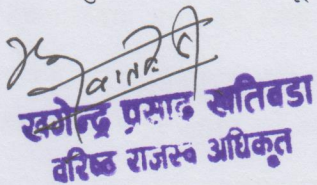 खगेन्द्र प्रसाद खतिवडा
वरिष्ठ राजस्व अधिकृत